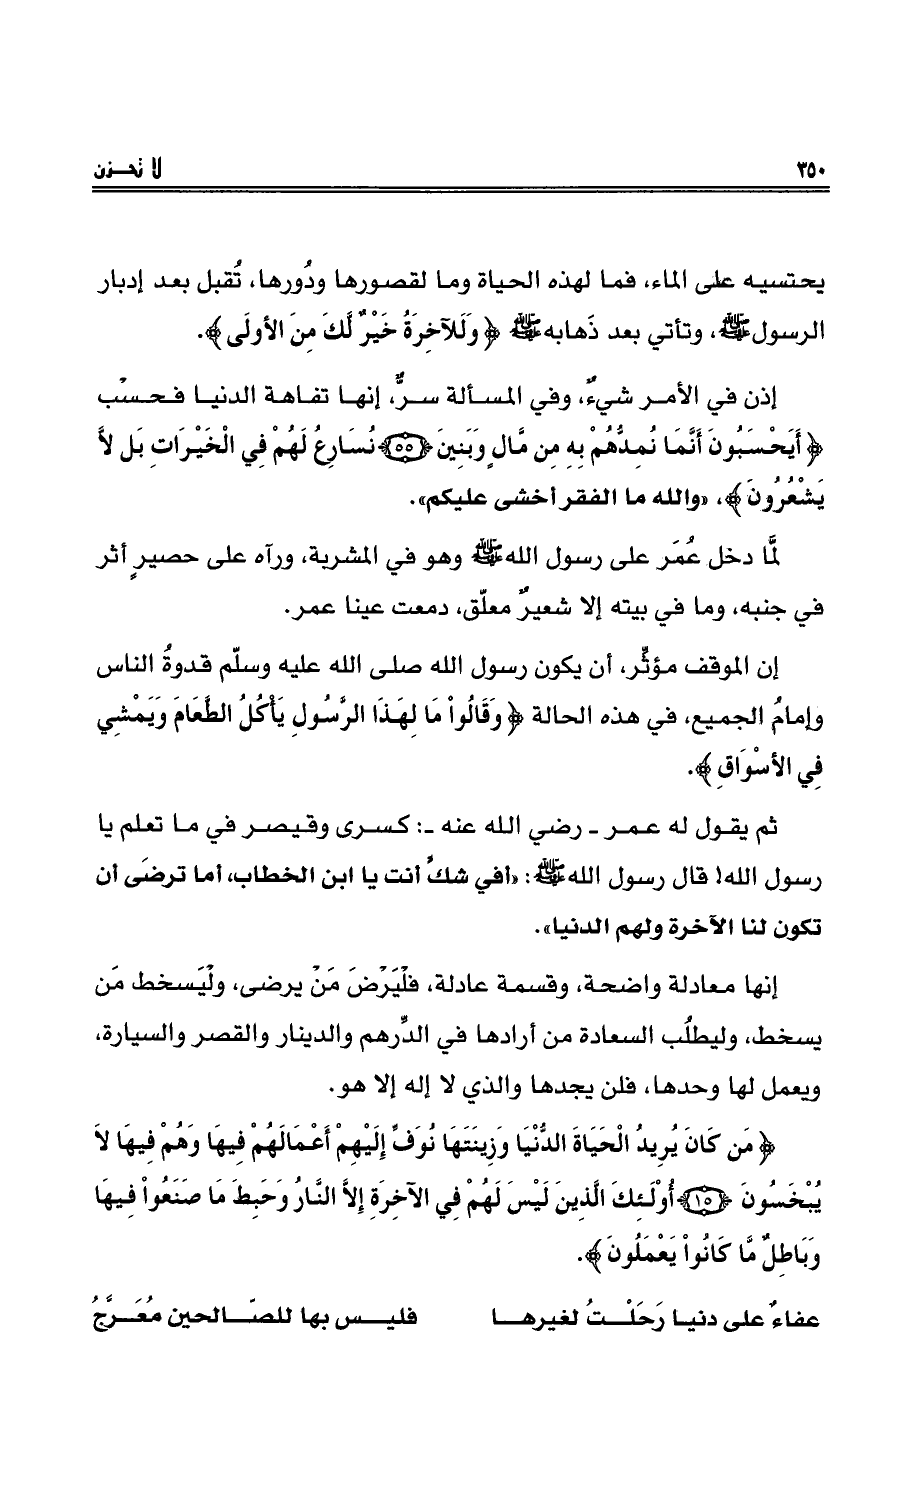 ٣٥٠ لا تحـزن
يحتسيه على الماء، فما لهذه الحياة وما لقصورها ودُورها، تُقبل بعد إدبار
الرسول ﷺ، وتأتي بعد ذَهابه ﷺ ﴿وَلَلآخِرَةُ خَيْرٌ لَّكَ مِنَ الأُولَى﴾.
إذن في الأمـر شيءٌ، وفي المسـألة سـرٌّ، إنهـا تفـاهـة الدنيـا فـحـسـْب
﴿أَيَحْسَبُونَ أَنَّمَا نُمِدُّهُمْ بِهِ مِن مَّالٍ وَبَنِينَ ﴿٥٥﴾ نُسَارِعُ لَهُمْ فِي الْخَيْرَاتِ بَل لاَّ
يَشْعُرُونَ﴾، «والله ما الفقر أخشى عليكم».
لمَّا دخل عُمَر على رسول الله ﷺ وهو في المشربة، ورآه على حصيرٍ أثر
في جنبه، وما في بيته إلا شعيرٌ معلّق، دمعت عينا عمر.
إن الموقف مؤثِّر، أن يكون رسول الله صلى الله عليه وسلّم قدوةُ الناس
وإمامُ الجميع، في هذه الحالة ﴿وَقَالُواْ مَا لِهَذَا الرَّسُولِ يَأْكُلُ الطَّعَامَ وَيَمْشِي
فِي الأَسْوَاقِ﴾.
ثم يقـول له عـمـر ـ رضي الله عنه ـ: كسـرى وقـيـصـر في مـا تعلم يا
رسول الله! قال رسول الله ﷺ: «أفي شكٍّ أنت يا ابن الخطاب، أما ترضَى أن
تكون لنا الآخرة ولهم الدنيا».
إنها معادلة واضحة، وقسمة عادلة، فلْيَرْضَ مَنْ يرضى، ولْيَسخط مَن
يسخط، وليطلُب السعادة من أرادها في الدِّرهم والدينار والقصر والسيارة،
ويعمل لها وحدها، فلن يجدها والذي لا إله إلا هو.
﴿مَن كَانَ يُرِيدُ الْحَيَاةَ الدُّنْيَا وَزِينَتَهَا نُوَفِّ إِلَيْهِمْ أَعْمَالَهُمْ فِيهَا وَهُمْ فِيهَا لاَ
يُبْخَسُونَ ﴿١٥﴾ أُوْلَئِكَ الَّذِينَ لَيْسَ لَهُمْ فِي الآخِرَةِ إِلاَّ النَّارُ وَحَبِطَ مَا صَنَعُواْ فِيهَا
وَبَاطِلٌ مَّا كَانُواْ يَعْمَلُونَ﴾.
عفاءٌ على دنيـا رَحَلْـتُ لغيرهـا فليـس بها للصّـالحين مُعَـرَّجُ